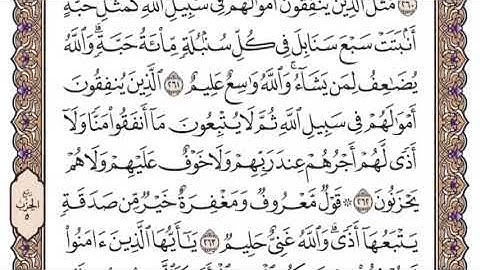 ﴿٢٦٠﴾ مَّثَلُ الَّذِينَ يُنفِقُونَ أَمْوَالَهُمْ فِي سَبِيلِ اللَّهِ كَمَثَلِ حَبَّةٍ
أَنبَتَتْ سَبْعَ سَنَابِلَ فِي كُلِّ سُنبُلَةٍ مِّائَةُ حَبَّةٍ ۗ وَاللَّهُ
يُضَاعِفُ لِمَن يَشَاءُ ۗ وَاللَّهُ وَاسِعٌ عَلِيمٌ ﴿٢٦١﴾ الَّذِينَ يُنفِقُونَ
أَمْوَالَهُمْ فِي سَبِيلِ اللَّهِ ثُمَّ لَا يُتْبِعُونَ مَا أَنفَقُوا مَنًّا وَلَا
أَذًى لَّهُمْ أَجْرُهُمْ عِندَ رَبِّهِمْ وَلَا خَوْفٌ عَلَيْهِمْ وَلَا هُمْ
يَحْزَنُونَ ﴿٢٦٢﴾ ۞ قَوْلٌ مَّعْرُوفٌ وَمَغْفِرَةٌ خَيْرٌ مِّن صَدَقَةٍ
يَتْبَعُهَا أَذًى ۗ وَاللَّهُ غَنِيٌّ حَلِيمٌ ﴿٢٦٣﴾ يَا أَيُّهَا الَّذِينَ آمَنُوا
ربع
الحزب
٥